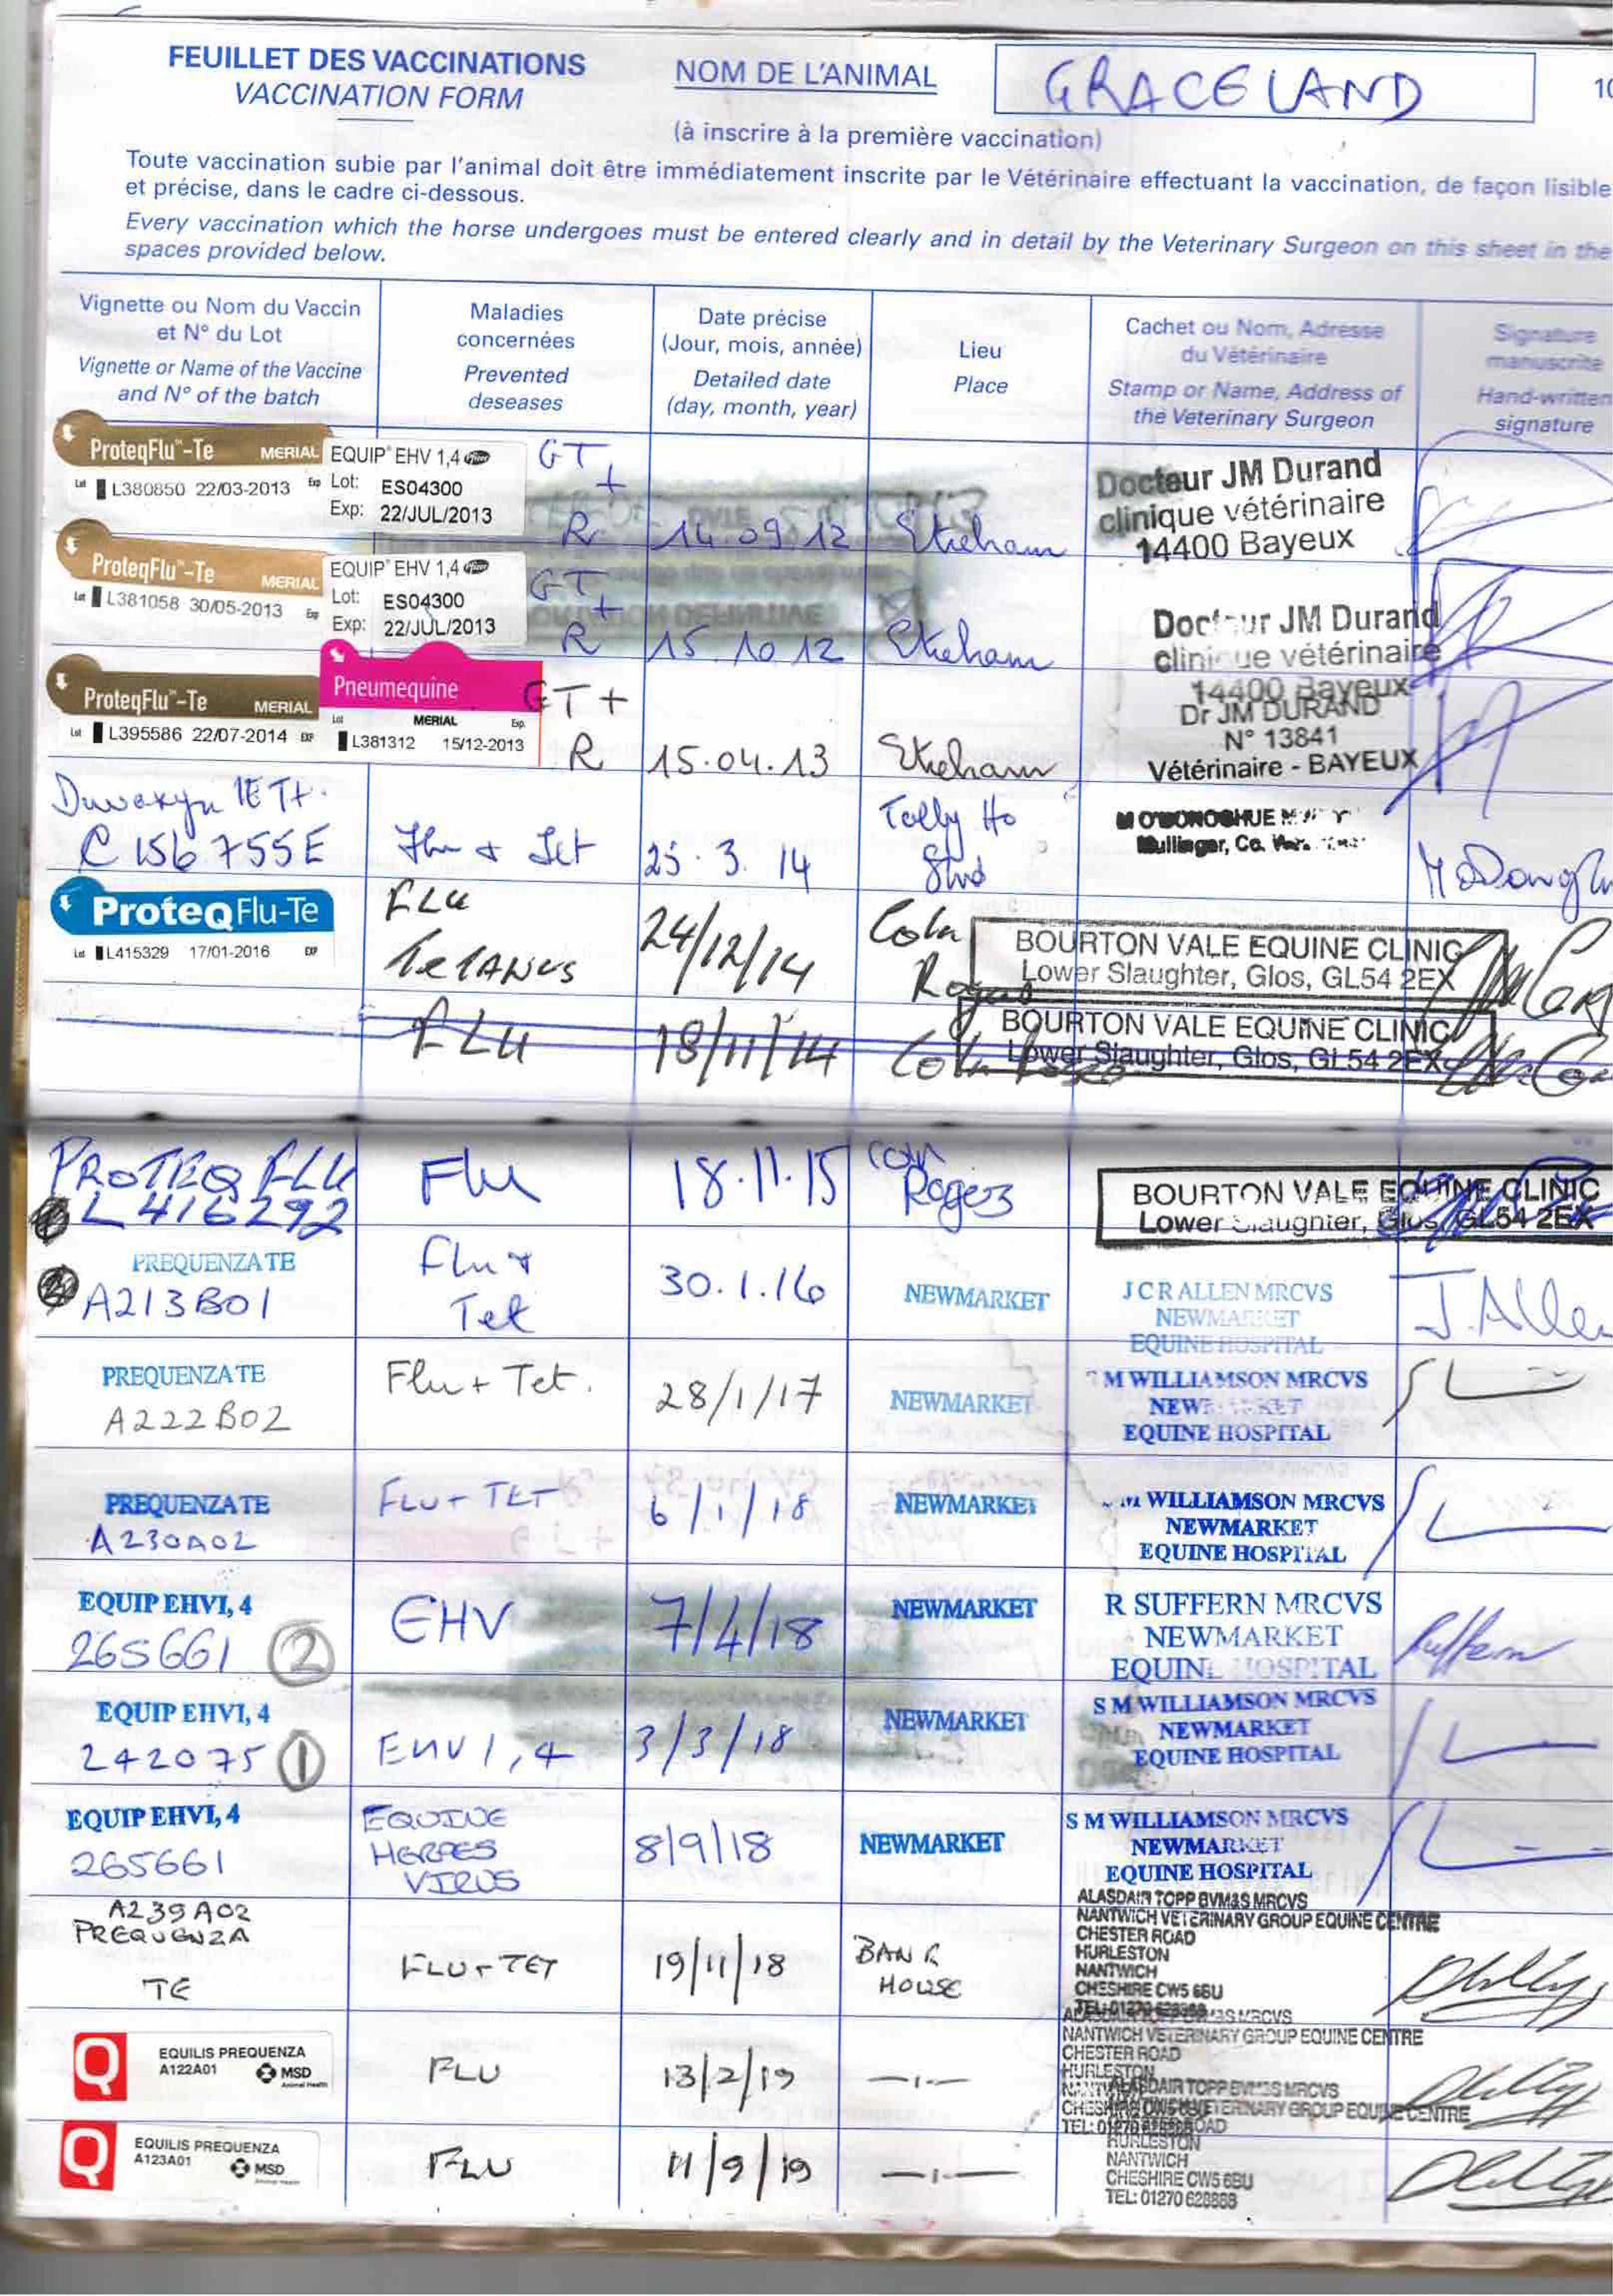 FEUILLET DES VACCINATIONS
VACCINATION FORM
NOM DE L'ANIMAL
GRACELAND
10
(à inscrire à la première vaccination)
Toute vaccination subie par l'animal doit être immédiatement inscrite par le Vétérinaire effectuant la vaccination, de façon lisible
et précise, dans le cadre ci-dessous.
Every vaccination which the horse undergoes must be entered clearly and in detail by the Veterinary Surgeon on this sheet in the
spaces provided below.
Vignette ou Nom du Vaccin
et N° du Lot
Vignette or Name of the Vaccine
and N° of the batch
Maladies
concernées
Prevented
deseases
Date précise
(Jour, mois, année)
Detailed date
(day, month, year)
Lieu
Place
Cachet ou Nom, Adresse
du Vétérinaire
Stamp or Name, Address of
the Veterinary Surgeon
Signature
manuscrite
Hand-written
signature
ProteqFlu™-Te MERIAL
Lot L380850 22/03-2013 Exp
EQUIP EHV 1,4 Pfizer
Lot: ES04300
Exp: 22/JUL/2013
GT
+
R
14.09.12
Docteur JM Durand
clinique vétérinaire
14400 Bayeux
ProteqFlu™-Te MERIAL
Lot L381058 30/05-2013 Exp
EQUIP EHV 1,4 Pfizer
Lot: ES04300
Exp: 22/JUL/2013
GT
+
R
15.10.12
Docteur JM Durand
clinique vétérinaire
14400 Bayeux
ProteqFlu™-Te MERIAL
Lot L395586 22/07-2014 EXP
Pneumequine
Lot MERIAL Exp.
L381312 15/12-2013
GT +
R
15.04.13
Dr JM DURAND
N° 13841
Vétérinaire - BAYEUX
Duvaxyn IE T+.
C156755E
Flu + Tet
25.3.14
Tally Ho
Stud
M O'DONOGHUE
Mullingar, Co.
ProteqFlu-Te
Lot L415329 17/01-2016 EXP
FLU
TETANUS
24/12/14
Coln
Rogers
BOURTON VALE EQUINE CLINIC
Lower Slaughter, Glos, GL54 2EX
FLU
18/11/14
Coln Rogers
BOURTON VALE EQUINE CLINIC
Lower Slaughter, Glos, GL54 2EX
PROTEQ FLU
L416292
Flu
18.11.15
Coln
Rogers
BOURTON VALE EQUINE CLINIC
Lower Slaughter, Glos, GL54 2EX
PREQUENZA TE
A213B01
Flu +
Tet
30.1.16
NEWMARKET
J C R ALLEN MRCVS
NEWMARKET
EQUINE HOSPITAL
J. Allen
PREQUENZA TE
A222B02
Flu + Tet.
28/1/17
NEWMARKET
M WILLIAMSON MRCVS
NEWMARKET
EQUINE HOSPITAL
PREQUENZA TE
A230A02
FLU + TET
6/1/18
NEWMARKET
WILLIAMSON MRCVS
NEWMARKET
EQUINE HOSPITAL
EQUIP EHVI, 4
265661 2
EHV
7/4/18
NEWMARKET
R SUFFERN MRCVS
NEWMARKET
EQUINE HOSPITAL
EQUIP EHVI, 4
242075 1
EHV 1,4
3/3/18
NEWMARKET
S M WILLIAMSON MRCVS
NEWMARKET
EQUINE HOSPITAL
EQUIP EHVI, 4
265661
EQUINE
HERPES
VIRUS
8/9/18
NEWMARKET
S M WILLIAMSON MRCVS
NEWMARKET
EQUINE HOSPITAL
A239A02
PREQUENZA
TE
FLU + TET
19/11/18
BANK
HOUSE
ALASDAIR TOPP BVM&S MRCVS
NANTWICH VETERINARY GROUP EQUINE CENTRE
CHESTER ROAD
HURLESTON
NANTWICH
CHESHIRE CW5 6BU
Q
EQUILIS PREQUENZA
A122A01 MSD
Animal Health
FLU
13/2/19
—ı—
NANTWICH VETERINARY GROUP EQUINE CENTRE
CHESTER ROAD
HURLESTON
Q
EQUILIS PREQUENZA
A123A01 MSD
Animal Health
FLU
11/9/19
—ı—
ALASDAIR TOPP BVM&S MRCVS
HURLESTON
NANTWICH
CHESHIRE CW5 6BU
TEL: 01270 628888